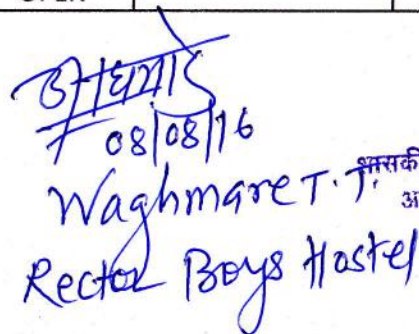 वाघमारे
08/08/16
Waghmare T. T.
Rector Boys Hostel